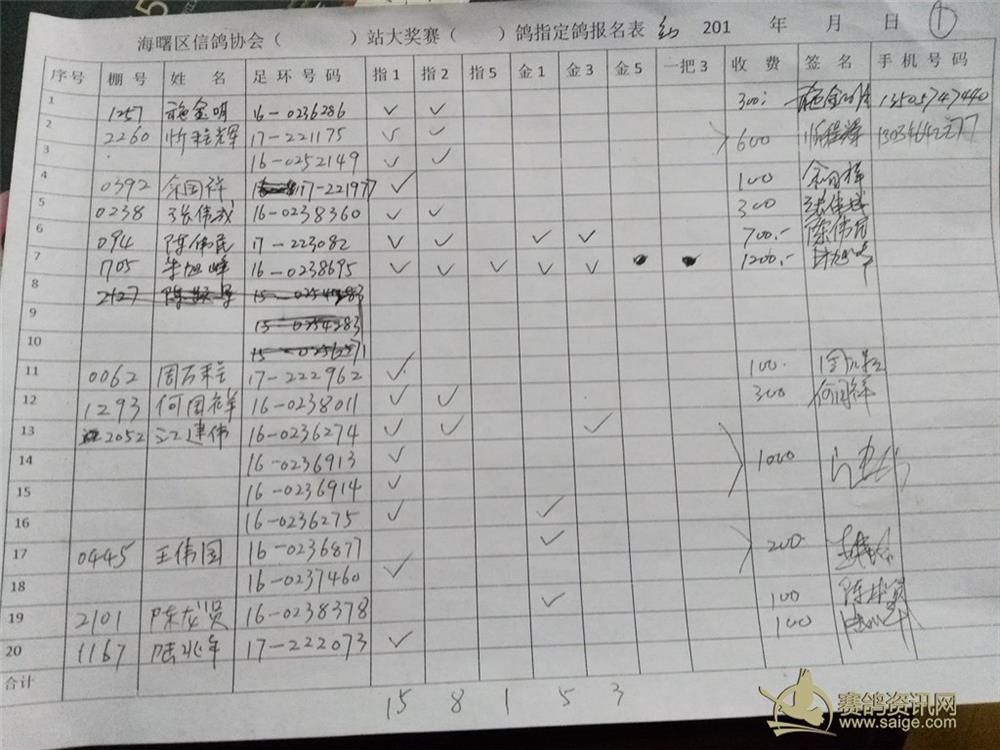 海曙区信鸽协会（ ）站大奖赛（ ）鸽指定鸽报名表 201 年 月 日 ①
序号 棚号 姓 名 足环号码 指1 指2 指5 金1 金3 金5 一把3 收 费 签 名 手机号码
1 1257 施金明 16-0236286 ✓ ✓ 300 13505747440
2 2260 忻 辉 17-221175 ✓ ✓ 600
3 16-0252149 ✓ ✓
4 0392 余国祥 17-221977 ✓ 100 余国祥
5 0238 张伟成 16-0238360 ✓ ✓ 300 张伟成
6 094 陈伟民 17-223082 ✓ ✓ ✓ ✓ 700.- 陈伟民
7 705 朱旭峰 16-0238695 ✓ ✓ ✓ ✓ ✓ 1200.-
8 2127
9 15-0254283
10
11 0062 周万 17-222962 ✓ 100.
12 1293 何国祥 16-0238011 ✓ ✓ 300 何国祥
13 2052 江建伟 16-0236274 ✓ ✓ ✓ 1000
14 16-0236913 ✓
15 16-0236914 ✓
16 16-0236275 ✓ ✓
17 0445 王伟国 16-0236877 ✓ 200
18 16-0237460 ✓
19 2101 陈龙贤 16-0238378 ✓ 100
20 1167 陆兆年 17-222073 ✓ 100
合计 15 8 1 5 3
赛鸽资讯网
www.saige.com